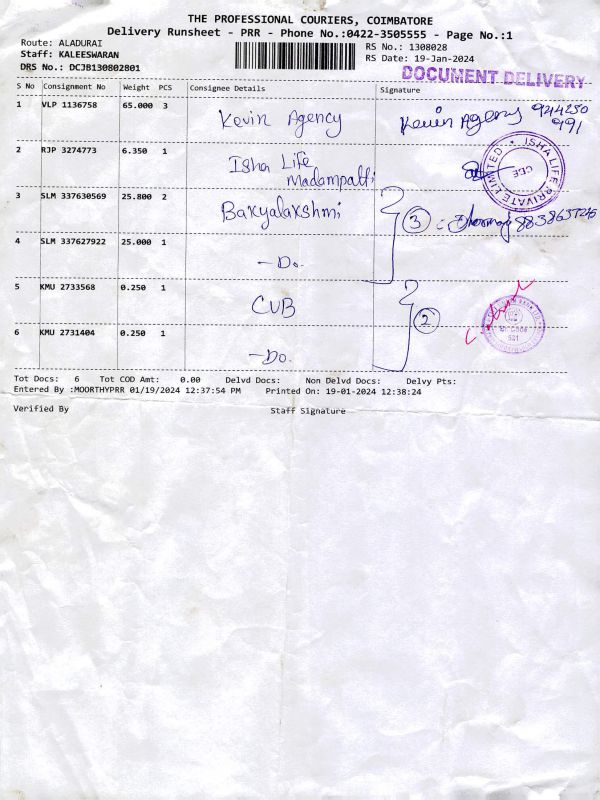 THE PROFESSIONAL COURIERS, COIMBATORE
Delivery Runsheet - PRR - Phone No.:0422-3505555 - Page No.:1
Route: ALADURAI
RS No.: 1308028
Staff: KALEESWARAN
RS Date: 19-Jan-2024
DRS No.: DCJB130802801
DOCUMENT DELIVERY
S No Consignment No Weight PCS Consignee Details Signature
1 VLP 1136758 65.000 3 Kevin Agency Kevin Agency 944250
991
2 RJP 3274773 6.350 1 Isha Life
Madampatti
ISHA LIFE PRIVATE LIMITED
3 SLM 337630569 25.800 2 Bakyalakshmi 3
4 SLM 337627922 25.000 1 -Do.
5 KMU 2733568 0.250 1 CUB 2
6 KMU 2731404 0.250 1 -Do.
Tot Docs: 6 Tot COD Amt: 0.00 Delvd Docs: Non Delvd Docs: Delvy Pts:
Entered By :MOORTHYPRR 01/19/2024 12:37:54 PM Printed On: 19-01-2024 12:38:24
Verified By Staff Signature